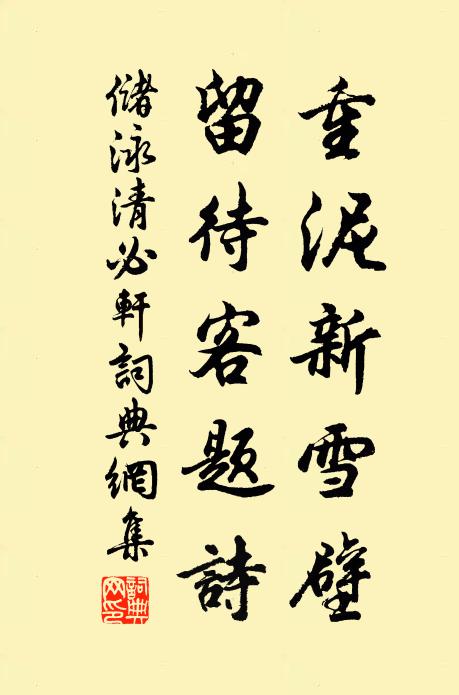 重泥新雪壁
留待客題詩
儲泳清必軒詞典網集
詞典網印